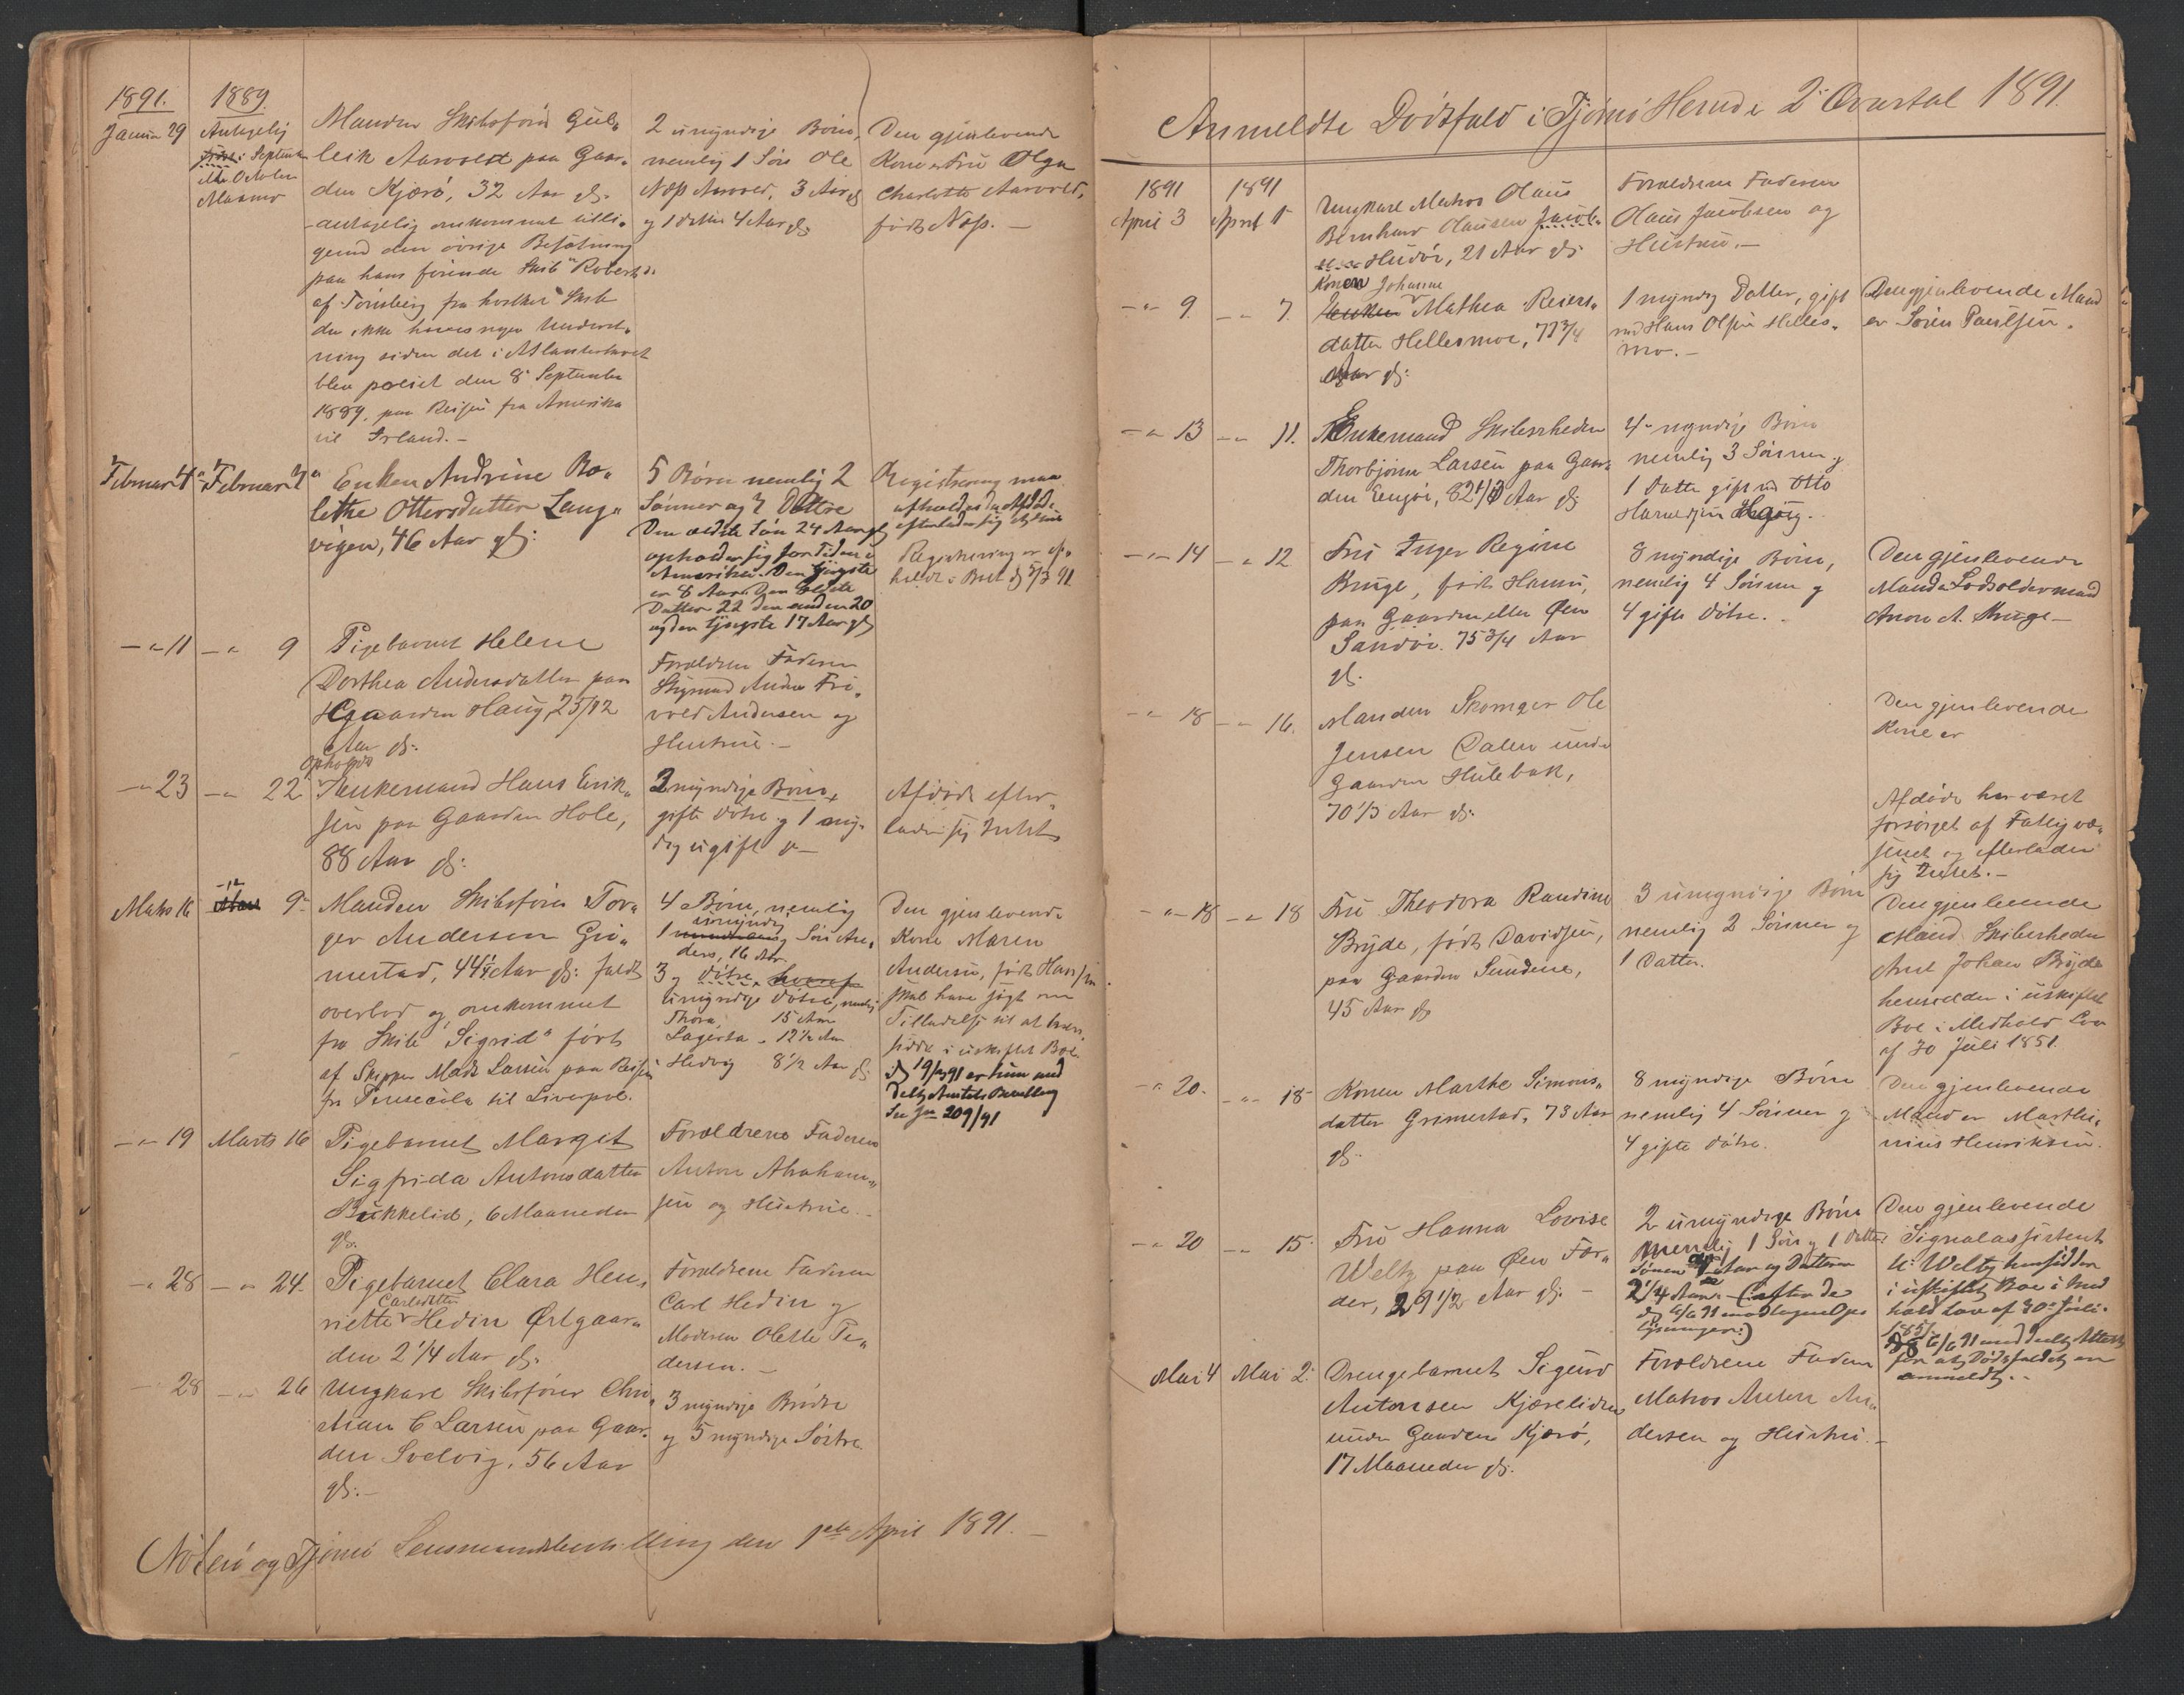 1891. 1889.
Januar 29 Antagelig
i Septemb
eller October
Maaned
Manden Skibsfører Gul„
leik Aarvold paa Gaar„
den Kjærø, 32 Aar gl.
antagelig omkommet tilli„
gemed den øvrige Besætning
paa hans førende Skib "Robert"
af Tønsberg fra hvilket Skib
der ikke haves nogen Underret„
ning siden det i Atlanterhavet
blev passiet den 8 September
1889, paa Reisen fra Amerika
til Irland.–
2 umyndige Børn,
nemlig 1 Søn Ole
Næss Aarvold, 3 Aar gl
og 1 datter 4 Aar gl.
Den gjenlevende
Kone er Fru Olga
Charlotte Aarvold,
født Næss.–
Februar 4 Februar 2
Enken Andrine Bo„
lethe Ottersdatter Lang„
vigen, 46 Aar gl:
5 Børn nemlig 2
Sønner og 3 Døttre
Den ældste Søn 24 Aar gl
opholder sig for Tiden i
Amerika. Den yngste
er 8 Aar. Den ældste
Datter 22 den anden 20
og den yngste 17 Aar gl
Registrering maa
afholdes da Afdøde
efterlader sig
Registrering er af„
holdt i Boet d 5/3 91
–"– 11 –"– 9
Pigebarnet Helene
Dorthea Andersdatter paa
Gaarden Haug, 25/12
Aar gl:
Forældrene Faderen
Styrmand Anders Fri„
vold Andersen og
Hustrue.–
–"– 23 –"– 22
Opholds
Enkemand Hans Erik„
sen paa Gaarden Hole,
88 Aar gl:
3 myndige Børn,
gifte Døtre og 1 myn„
dig ugift
Afdøde efter„
lader sig Intet
Marts 16 9
Manden Skibsfører Tor„
ger Andersen Gri„
mestad, 44 1/4 Aar gl: faldt
overbord og omkommet
fra Skib "Sigrid" ført
af Skipper Mads Larsen paa Reisen
fra Pensecola til Liverpol.
4 Børn, nemlig
umyndig
1 Søn An„
ders, 16 Aar
3 Døtre,
umyndige Døtre, nemlig
Thora 15 Aar
Lagerta „ 12 1/2 Aar
Hedvig 8 1/2 Aar gl.
Den gjenlevende
Kone Maren
Andersen, født Hansen
skal have søgt om
Tilladelse til at hen„
sidde i uskiftet Bo.
d 19/3 91 er hun med
delt Amtets Bevilling
See Jn 209/91
–"– 19 Marts 16
Pigebarnet Margit
Sigfrida Antonsdatter
Bukkelid, 6 Maaneder
gl.
Forældrene Faderen
Anton Abraham„
sen og Hustrue.–
–"– 28 –"– 24.
Pigebarnet Clara Hen„
Carlsdatter
riette Hedin Ørtgaar„
den 2 1/4 Aar gl.
Forældrene Faderen
Carl Hedin og
Moderen Olette Pe„
dersen.–
–"– 28 –"– 26
Ungkarl Skibsfører Chri„
stian C Larsen paa Gaar„
den Svelvig, 56 Aar
gl:–
3 myndige Brødre
og 5 myndige Søstre
Nøterø og Tjømø Lensmandsbestilling den 1ste April 1891.–
Anmeldte Dødsfald i Tjømø Herred i 2det Qvartal 1891.
1891 1891
April 3 April 1
Ungkarl Matros Olaus
Bernhard Olausen
Hudø, 21 Aar gl.
Forældrene Faderen
Olaus Jacobsen og
Hustrue.–
–"– 9. –"– 7.
Konen Johanne
Mathea Reiers„
datter Hellesmoe, 77 3/4
Aar gl:
1 myndig Datter, gift
med Hans Olsen Helles„
mo.–
Den gjenlevende Mand
er Søren Paulsen.
–"– 13 –"– 11.
Enkemand Skibsrheder
Thorbjørn Larsen paa Gaar„
den Engø, 82 1/3 Aar gl.
4 myndige Børn
nemlig 3 Sønner og
1 Datter gift med Otto
–"– 14 –"– 12
Fru Inger Regine
Kruge, født Hamu,
paa Gaarden eller Øen
Sandø. 75 3/4 Aar
gl.
8 myndige Børn,
nemlig 4 Sønner og
4 gifte Døtre.
Den gjenlevende
Mand er Lodsoldermand
Anon A. Kruge–
–"– 18 –"– 16.
Manden Skomager Ole
Jensen Dalen under
Gaarden Hulebak,
70 1/3 Aar gl.
Den gjenlevende
Kone er
Afdøde har været
forsørget af Fattigvæ„
senet og efterlader
sig Intet.–
–"– 18 –"– 18
Fru Theodora Randine
Bryde, født Davidsen,
paa Gaarden Sundene,
45 Aar gl
3 umyndige Børn
nemlig 2 Sønner og
1 Datter.
Den gjenlevende
Mand Skibsrheder
Ant Johan Bryde
hensidder i uskiftet
Boe i Medhold Lov
af 30 Juli 1851.
–"– 20. –"– 18
Konen Marthe Simons„
datter Grimestad, 73 Aar
gl.
8 myndige Børn
nemlig 4 Sønner og
4 gifte Døtre.
Den gjenlevende
Mand er Marthi„
nius Henriksen.
–"– 20 –"– 15
Fru Hanna Lovise
Weltz paa Øen Fær„
der, 29 1/2 Aar gl.–
2 umyndige Børn
nemlig 1 Søn og 1 Datter.
Sønen Aar og Datteren
2 1/4 Aar.– (efter de
d 6/6 91 modtagne Op
lysninger.)
Den gjenlevende
Signalassistent
Weltz hensidder
i uskiftet Boe i Med
hold Lov af 30te Juli
1851
6/6 91 meddelt Attest
for at Dødsfaldet er
anmeldt.–
Mai 4 Mai 2.
Drengebarnet Sigurd
Antonsen Kjærelien
under Gaarden Kjærø,
17 Maaneder gl.
Forældrene Faderen
Matros Anton An„
dersen og Hustru.–